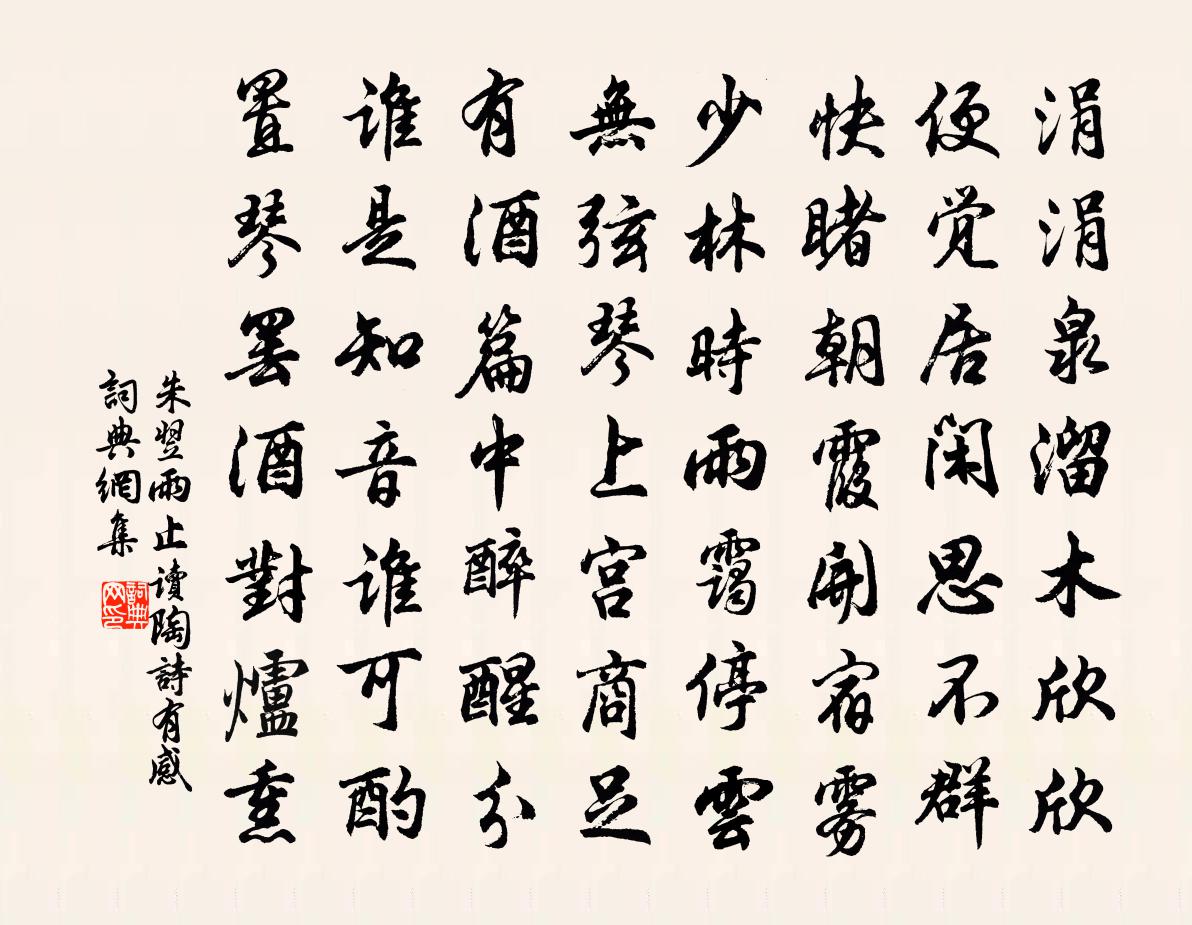 涓涓泉溜木欣欣
便觉居闲思不群
快睹朝霞開宿雾
少林時雨靄停雲
無弦琴上宫商足
有酒篇中醉醒分
誰是知音誰可酌
置琴罢酒對爐熏
朱翌雨止讀陶詩有感
詞典網集
詞典